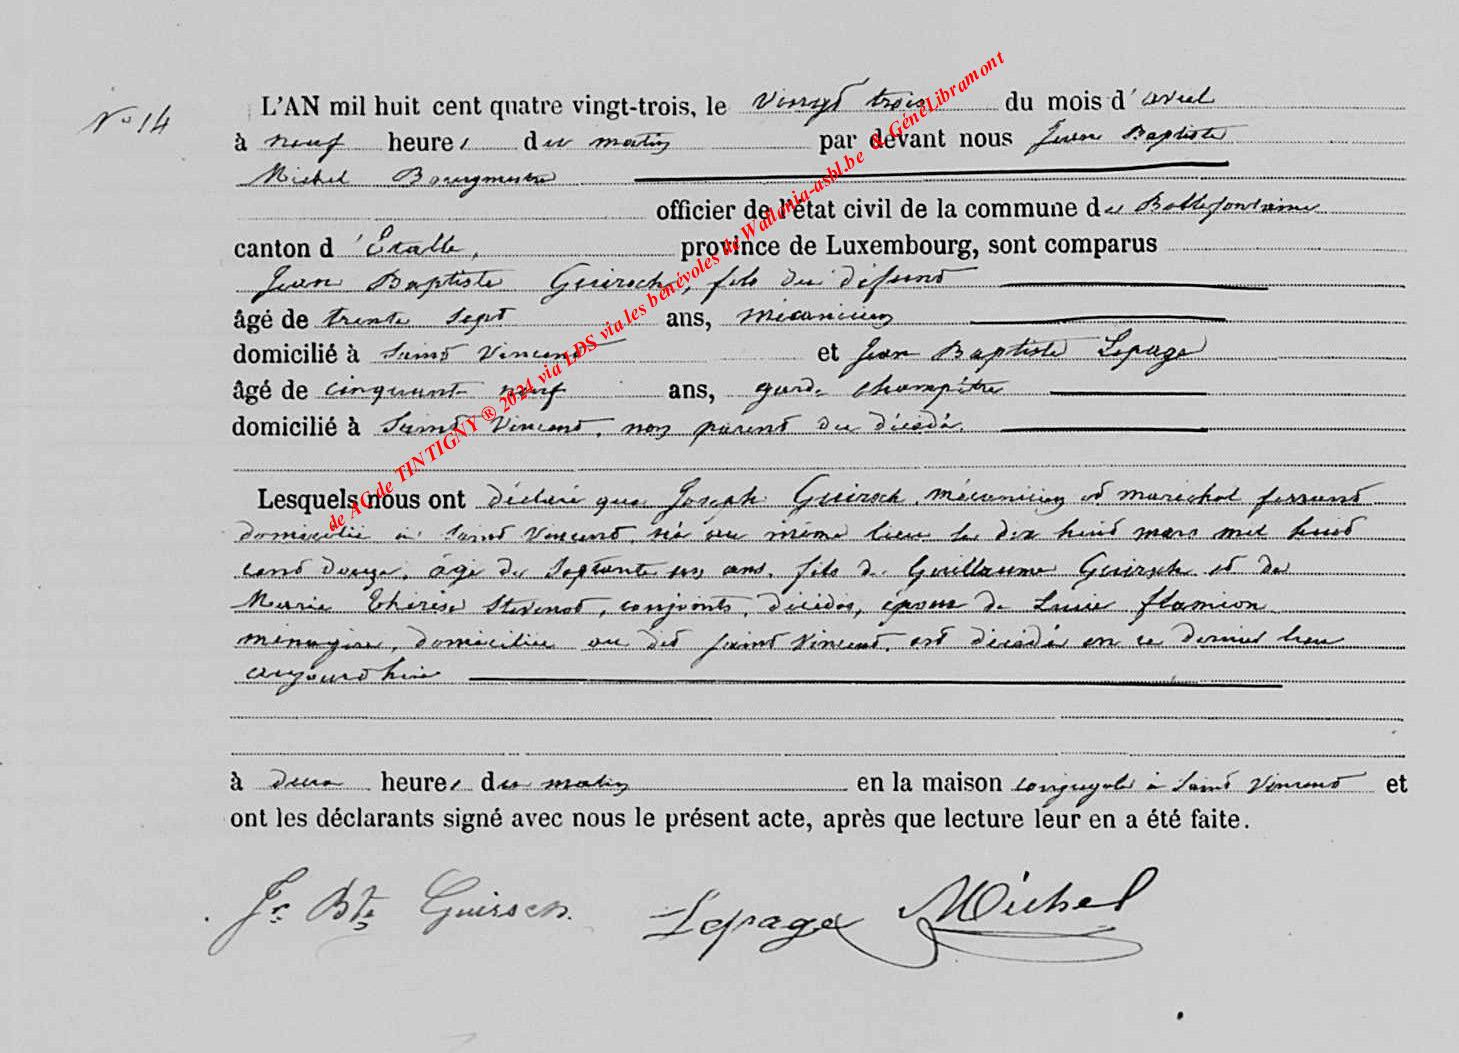 N° 14
L'AN mil huit cent quatre vingt-trois, le vingt trois du mois d'avril
à neuf heures du matin par devant nous Jean Baptiste
Michel Bourgmestre
officier de l'état civil de la commune de Bellefontaine
canton d'Etalle, province de Luxembourg, sont comparus
Jean Baptiste Guirsch, fils du défunt
âgé de trente sept ans, mécanicien
domicilié à Saint Vincent et Jean Baptiste Lepage
âgé de cinquante neuf ans, garde champêtre
domicilié à Saint Vincent, non parent du décédé.
Lesquels nous ont déclaré que Joseph Guirsch, mécanicien et maréchal ferrant
domicilié à Saint Vincent, né au même lieu le dix huit mars mil huit
cent douze, âgé de septante un ans, fils de Guillaume Guirsch et de
Marie Thérèse Stevenot, conjoints, décédés, époux de Lucie Flamion
ménagère, domiciliée au dit Saint Vincent, est décédé en ce dernier lieu
aujourd'hui
à deux heures du matin en la maison conjugale à Saint Vincent et
ont les déclarants signé avec nous le présent acte, après que lecture leur en a été faite.
Jn Bte Guirsch Lepage Michel
de AC de TINTIGNY ® 2024 via LDS via les bénévoles de Wallonia-asbl.be & GénéLibramont